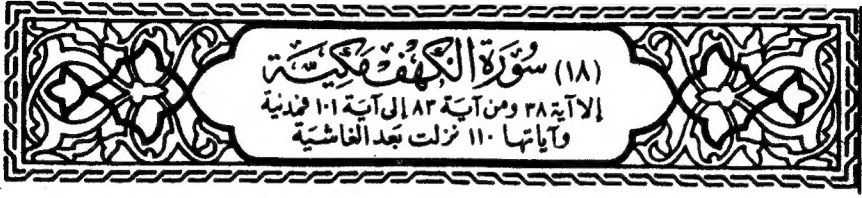 (١٨) سُورَة الكَهف مَكيَّة
إلا آية ٣٨ ومن آية ٨٣ إلى آية ١٠١ فمدنية
وآياتها ١١٠ نزلت بعد الغاشية